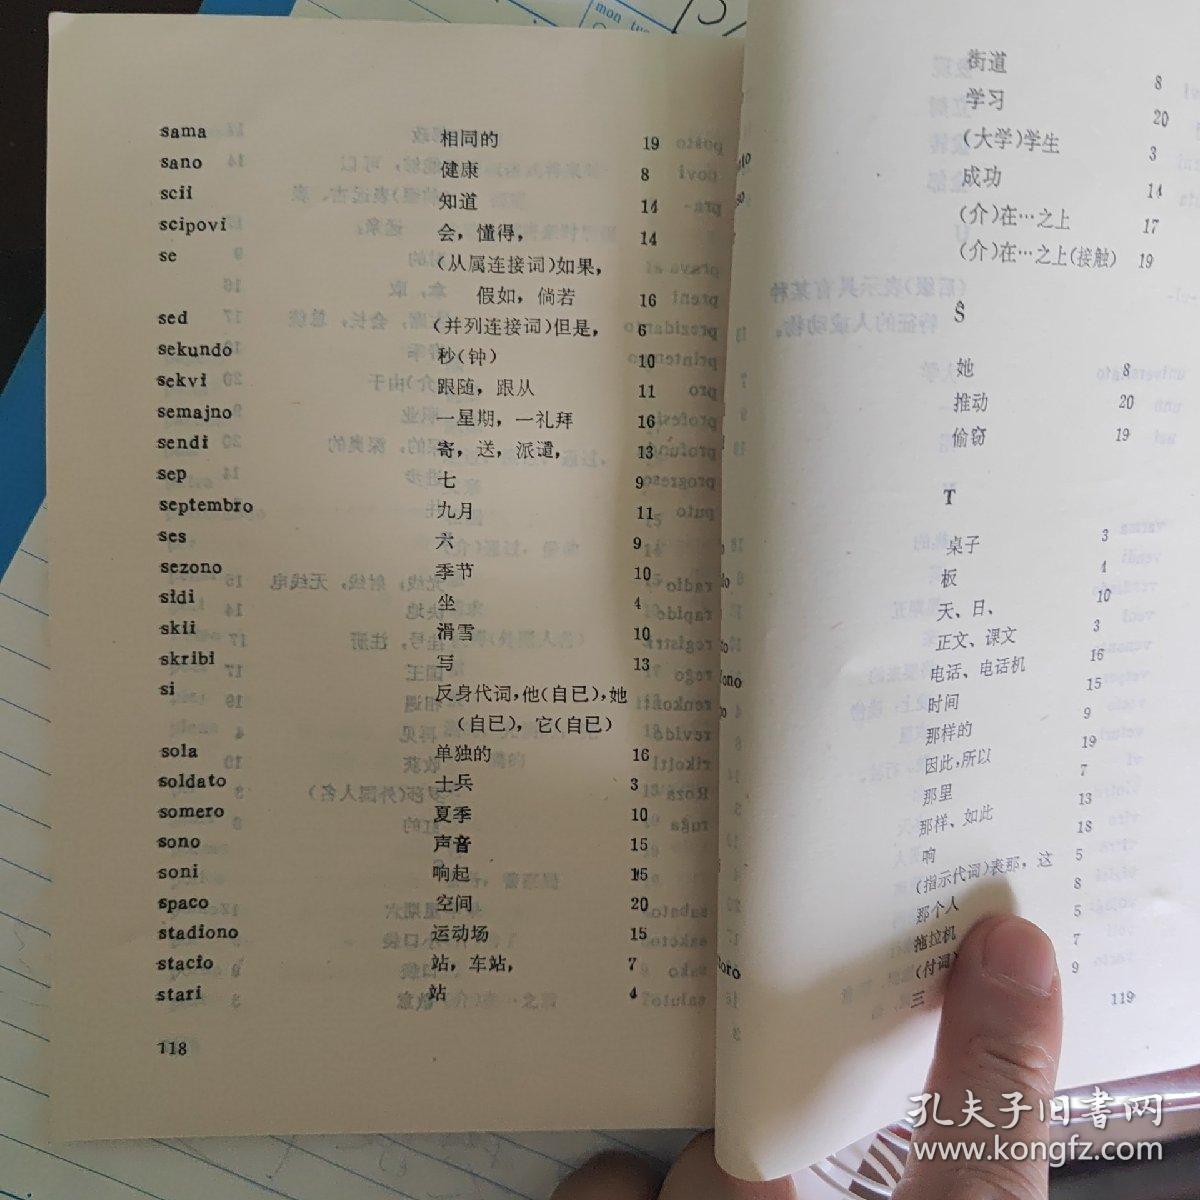 sama 相同的 19
sano 健康 8
scii 知道 14
scipovi 会，懂得， 14
se （从属连接词）如果，
假如，倘若 16
sed （并列连接词）但是， 6
sekundo 秒（钟） 10
sekvi 跟随，跟从 11
semajno 一星期，一礼拜 16
sendi 寄，送，派遣， 13
sep 七 9
septembro 九月 11
ses 六 9
sezono 季节 10
sidi 坐 4
skii 滑雪 10
skribi 写 13
si 反身代词，他（自已），她
（自已），它（自已）
sola 单独的 16
soldato 士兵 3
somero 夏季 10
sono 声音 15
soni 响起 15
spaco 空间 20
stadiono 运动场 15
stacio 站，车站， 7
stari 站 4
118
街道 8
学习 20
（大学）学生 3
成功 14
（介）在…之上 17
（介）在…之上（接触） 19
Ŝ
她 8
推动 20
偷窃 19
T
桌子 3
板 4
天、日、 10
正文、课文 3
电话、电话机 16
时间 15
那样的 9
因此，所以 19
那里 7
那样、如此 13
响 18
（指示代词）表那，这 5
那个人 8
拖拉机 5
（付词） 7
三 9
119
孔夫子旧书网
www.kongfz.com